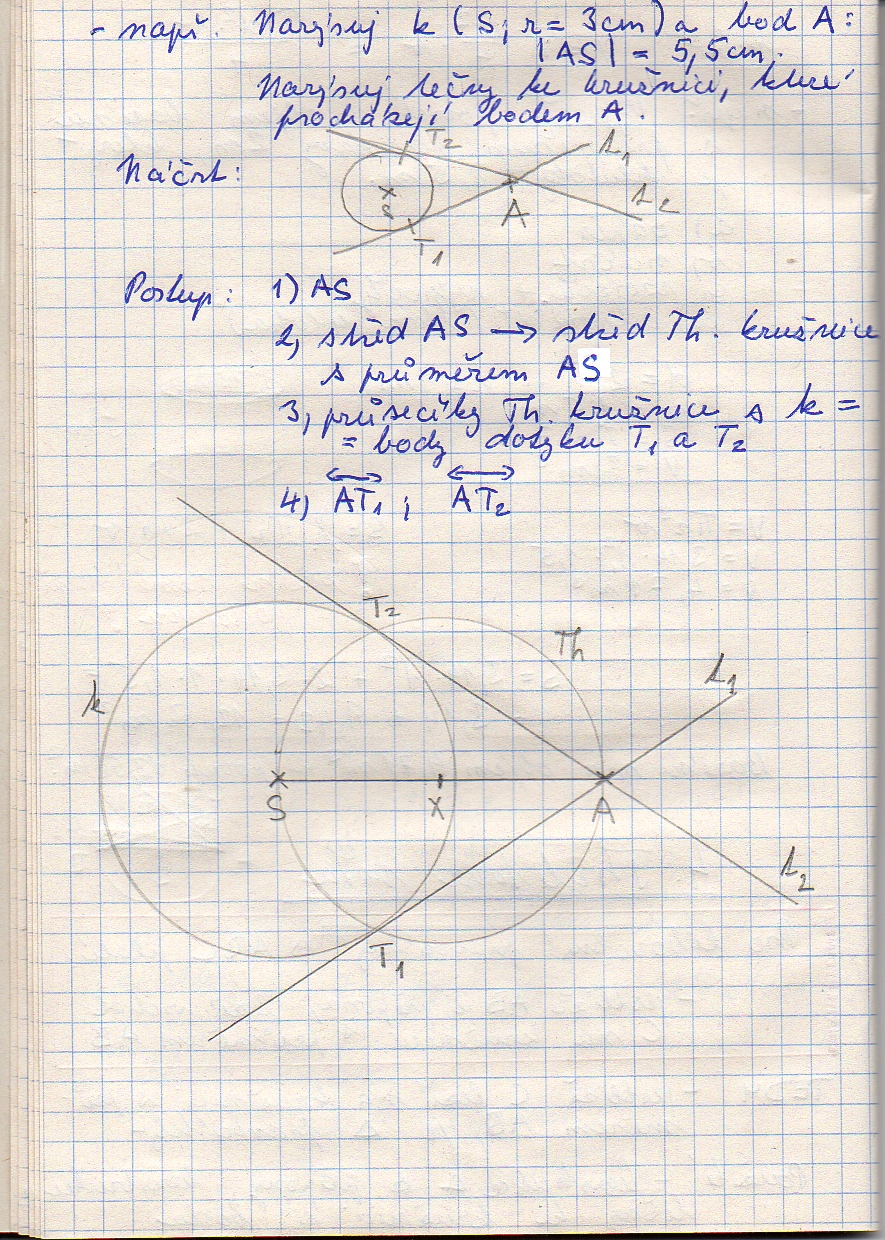 - např. Narýsuj k (S; r = 3cm) a bod A:
|AS| = 5,5cm.
Narýsuj tečny ke kružnici, které
procházejí bodem A.
Náčrt:
T2
t1
S
A
t2
T1
Postup: 1) AS
2, střed AS → střed Th. kružnice
s průměrem AS
3, průsečíky Th. kružnice s k =
= body dotyku T1 a T2
4) AT1 ; AT2
T2
Th
k
t1
S
X
A
t2
T1